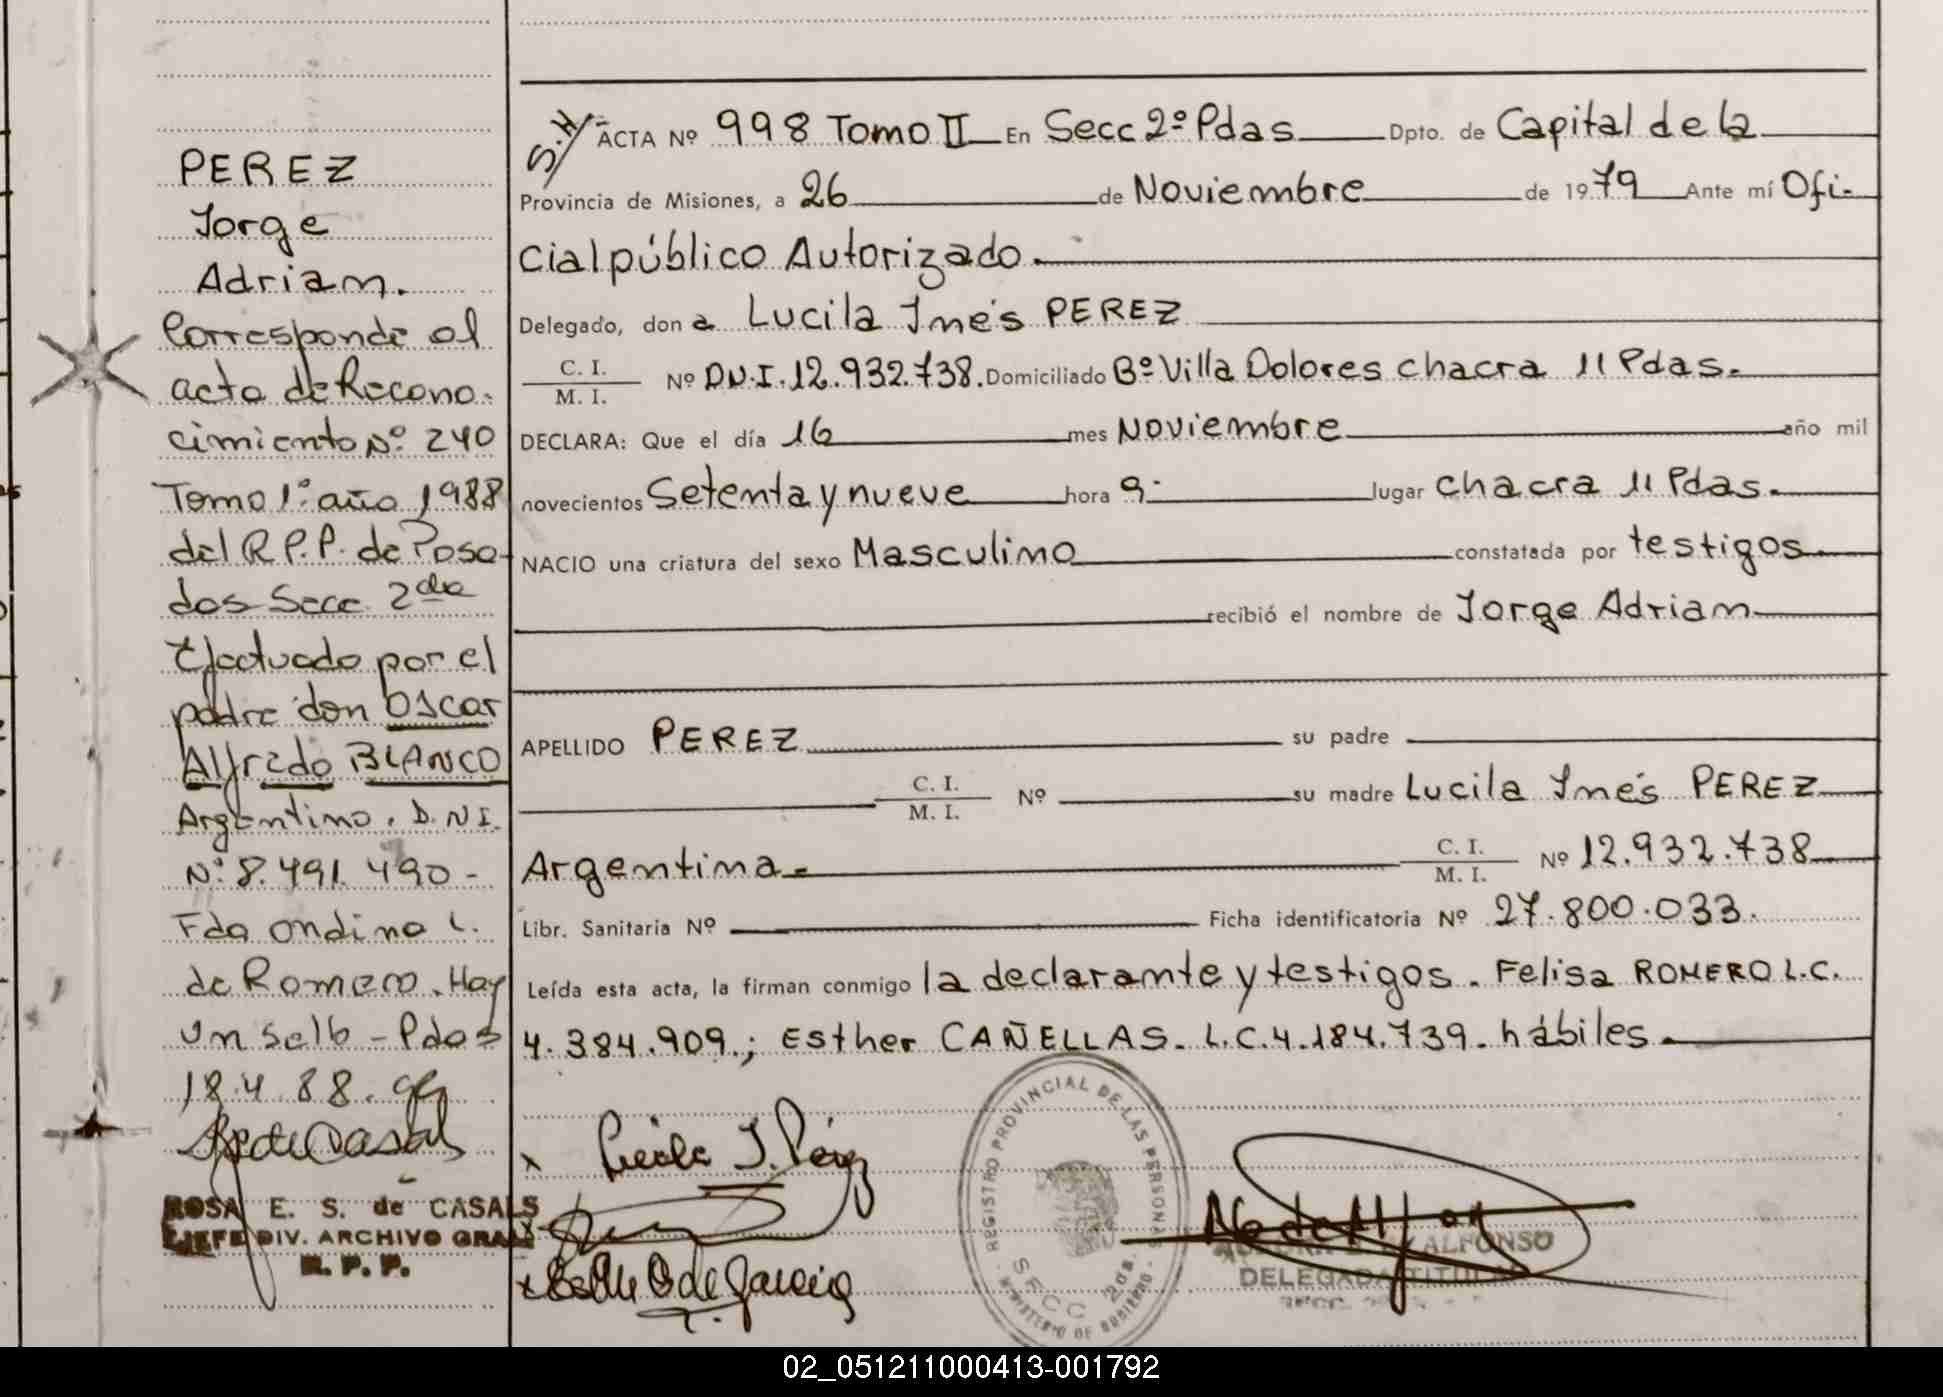 PEREZ
Jorge
Adrian.
Corresponde al
acta de Recono-
cimiento Nº 240
Tomo 1º año 1988
del R.P.P. de Posa-
das Secc. 2da
Efectuado por el
padre don Oscar
Alfredo BLANCO
Argentino. D.N.I.
Nº 8.491.490-
Fda Ondina L.
de Romero. Hay
un sello - Pdas
18.4.88.
ROSA E. S. de CASALS
JEFE DIV. ARCHIVO GRAL
R. P. P.
S.H/ ACTA Nº 998 Tomo II En Secc 2º Pdas Dpto. de Capital de la
Provincia de Misiones, a 26 de Noviembre de 1979 Ante mí Ofi-
cial público Autorizado.
Delegado, don a Lucila Inés PEREZ
C. I.
M. I. Nº D.N.I. 12.932.738. Domiciliado Bº Villa Dolores chacra 11 Pdas.
DECLARA: Que el día 16 mes Noviembre año mil
novecientos Setenta y nueve hora 9- lugar chacra 11 Pdas.
NACIO una criatura del sexo Masculino constatada por testigos.
recibió el nombre de Jorge Adrian
APELLIDO PEREZ su padre
C. I.
M. I. Nº su madre Lucila Inés PEREZ
Argentina. C. I.
M. I. Nº 12.932.738
Libr. Sanitaria Nº Ficha identificatoria Nº 27.800.033.
Leída esta acta, la firman conmigo la declarante y testigos. Felisa ROMERO L.C.
4.384.909.; Esther CAÑELLAS. L.C. 4.184.739. hábiles.
x Lucila I. Pérez
REGISTRO PROVINCIAL DE LAS PERSONAS
SECC 2da.
MINISTERIO DE GOBIERNO
ALFONSO
DELEGADA TITULAR
02_051211000413-001792